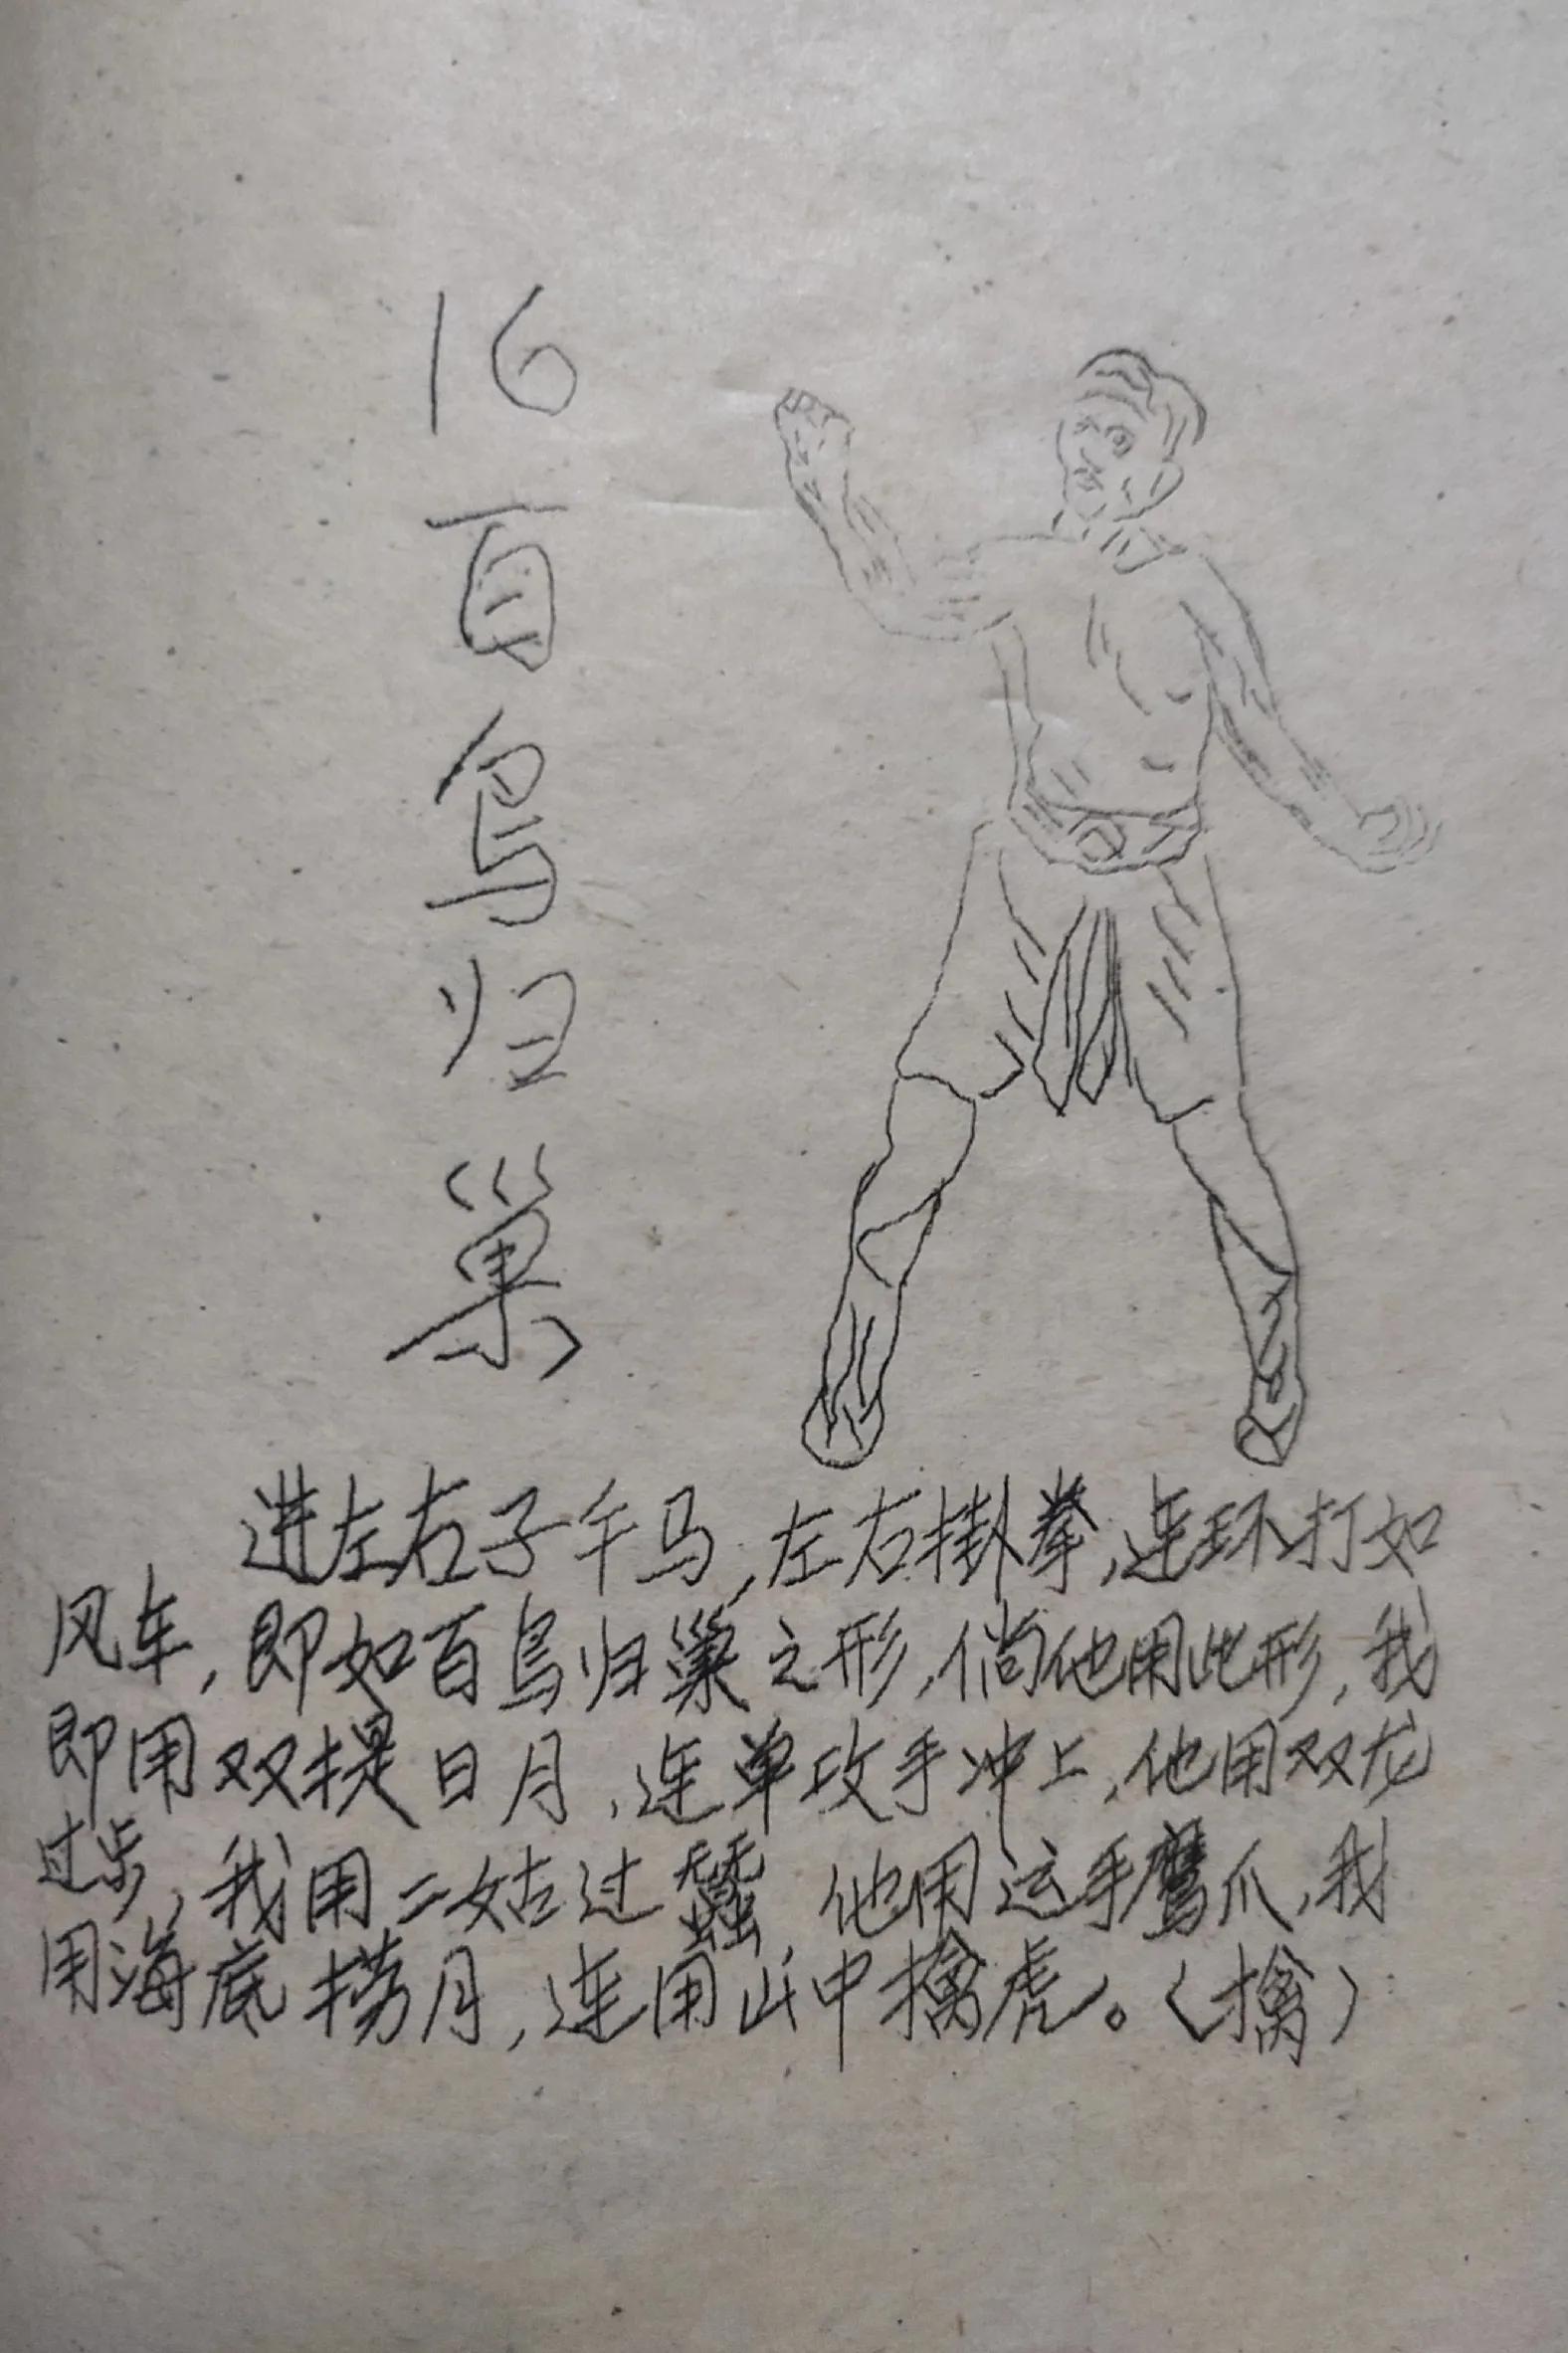 16
百鸟归巢
进左右子午马,左右掛拳,连环打如
风车,即如百鸟归巢之形,倘他用此形,我
即用双提日月,连单攻手冲上,他用双龙
过步,我用二姑过,他用运手鹰爪,我
用海底捞月,连用山中擒虎。(擒)